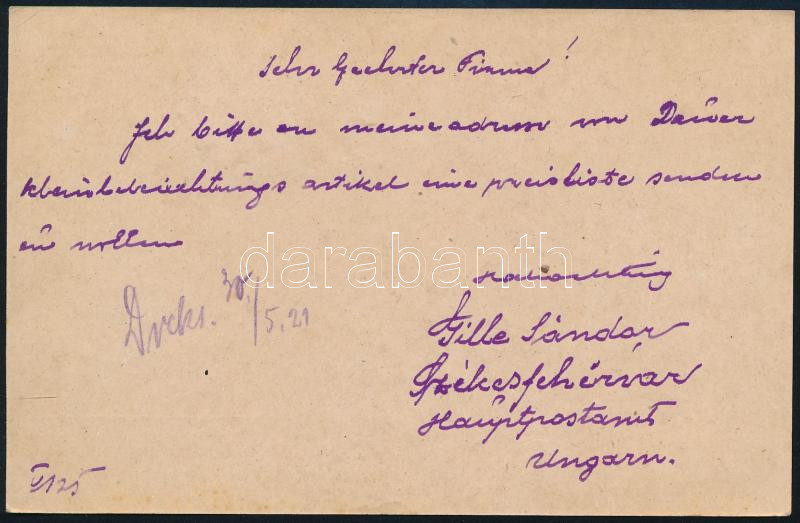 Sehr Geehrter Firma!
Ich bitte an meine adresse von Dauer
kleinbeleuchtungs artikel eine preisliste senden
zu wollen
darabanth
Hochachtung
Gille Sándor
Székesfehérvár
Hauptpostamt
Ungarn.
Drcks. 30./5.21